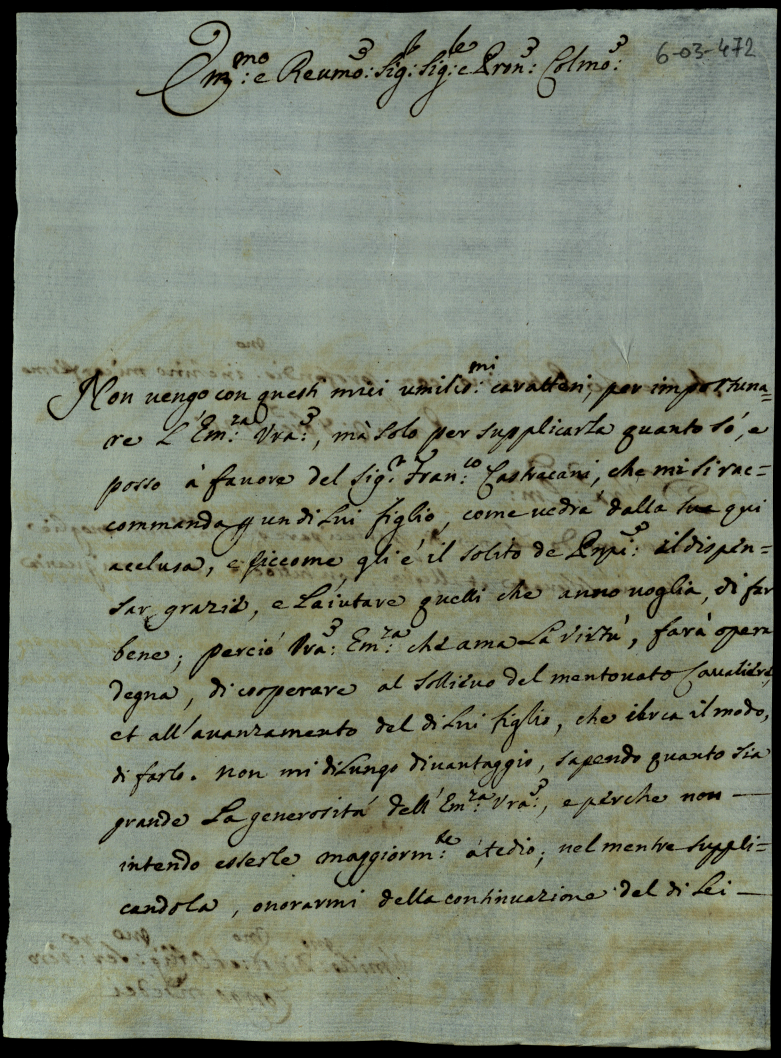 6-03-472
Em:mo e Reumo: Sig:r Sig:re e Pron: Colmo:
Non uengo con questi miei umilis:mi caratteri, per importuna=
re L'Em:za Vra:, mà solo per supplicarla quanto só, e
posso à fauore del Sig:r Fran:co Castracani, che mi si rac=
commanda p un di Lui figlio, come uedrà dalla sua qui
acclusa, e siccome, gli é il solito de Prpi: il dispen=
sar grazie, e L'aiutare quelli che anno uoglia, di far
bene; perció Vra: Em:za che ama La Virtú, farà opera
degna, di cooperare al sollieuo del mentouato Caualiere,
et all'auanzamento del di Lui figlio, che cerca il modo,
di farlo. Non mi diLungo diuantaggio, sapendo quanto sia
grande La generositá dell'Em:za Vra:, e perche non —
intendo esserle maggiorm:te à tedio; nel mentre suppli=
candola, onorarmi della continuazione del di Lei —